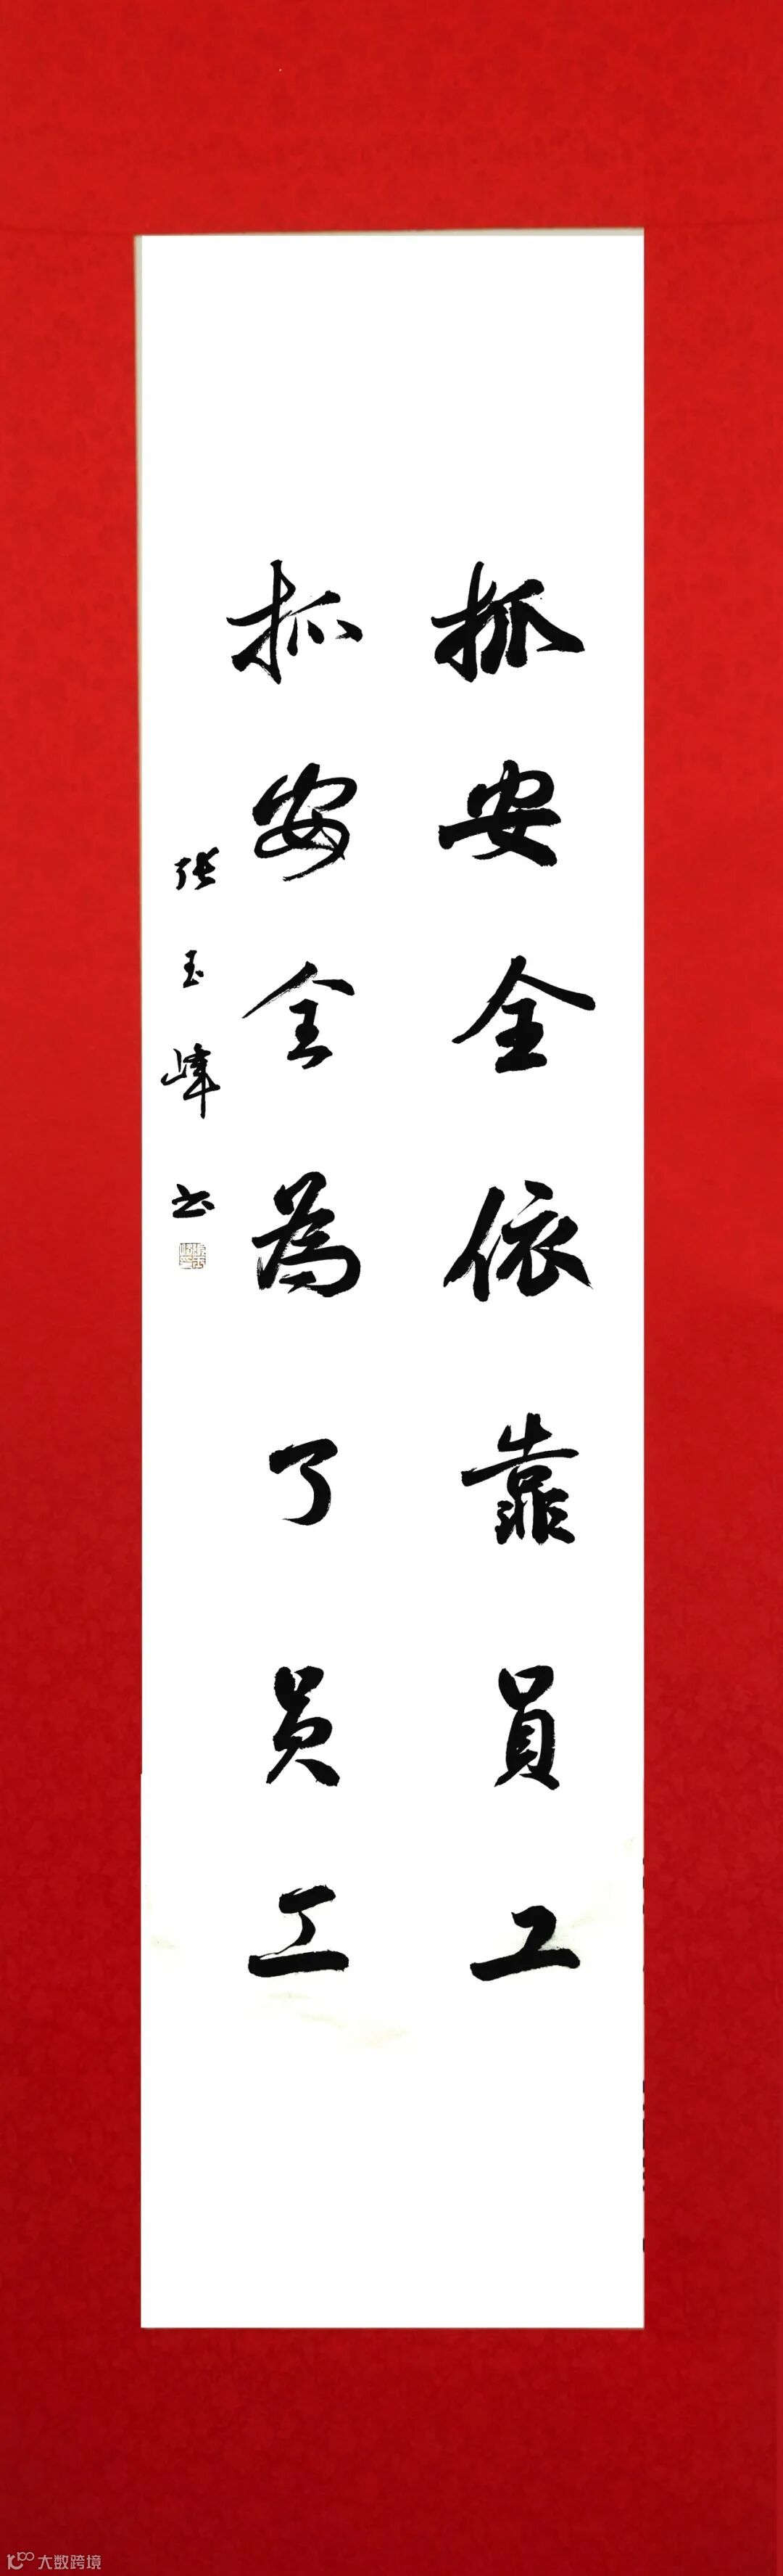 抓安全依靠員工
抓安全為了员工
张玉峰书
大数跨境